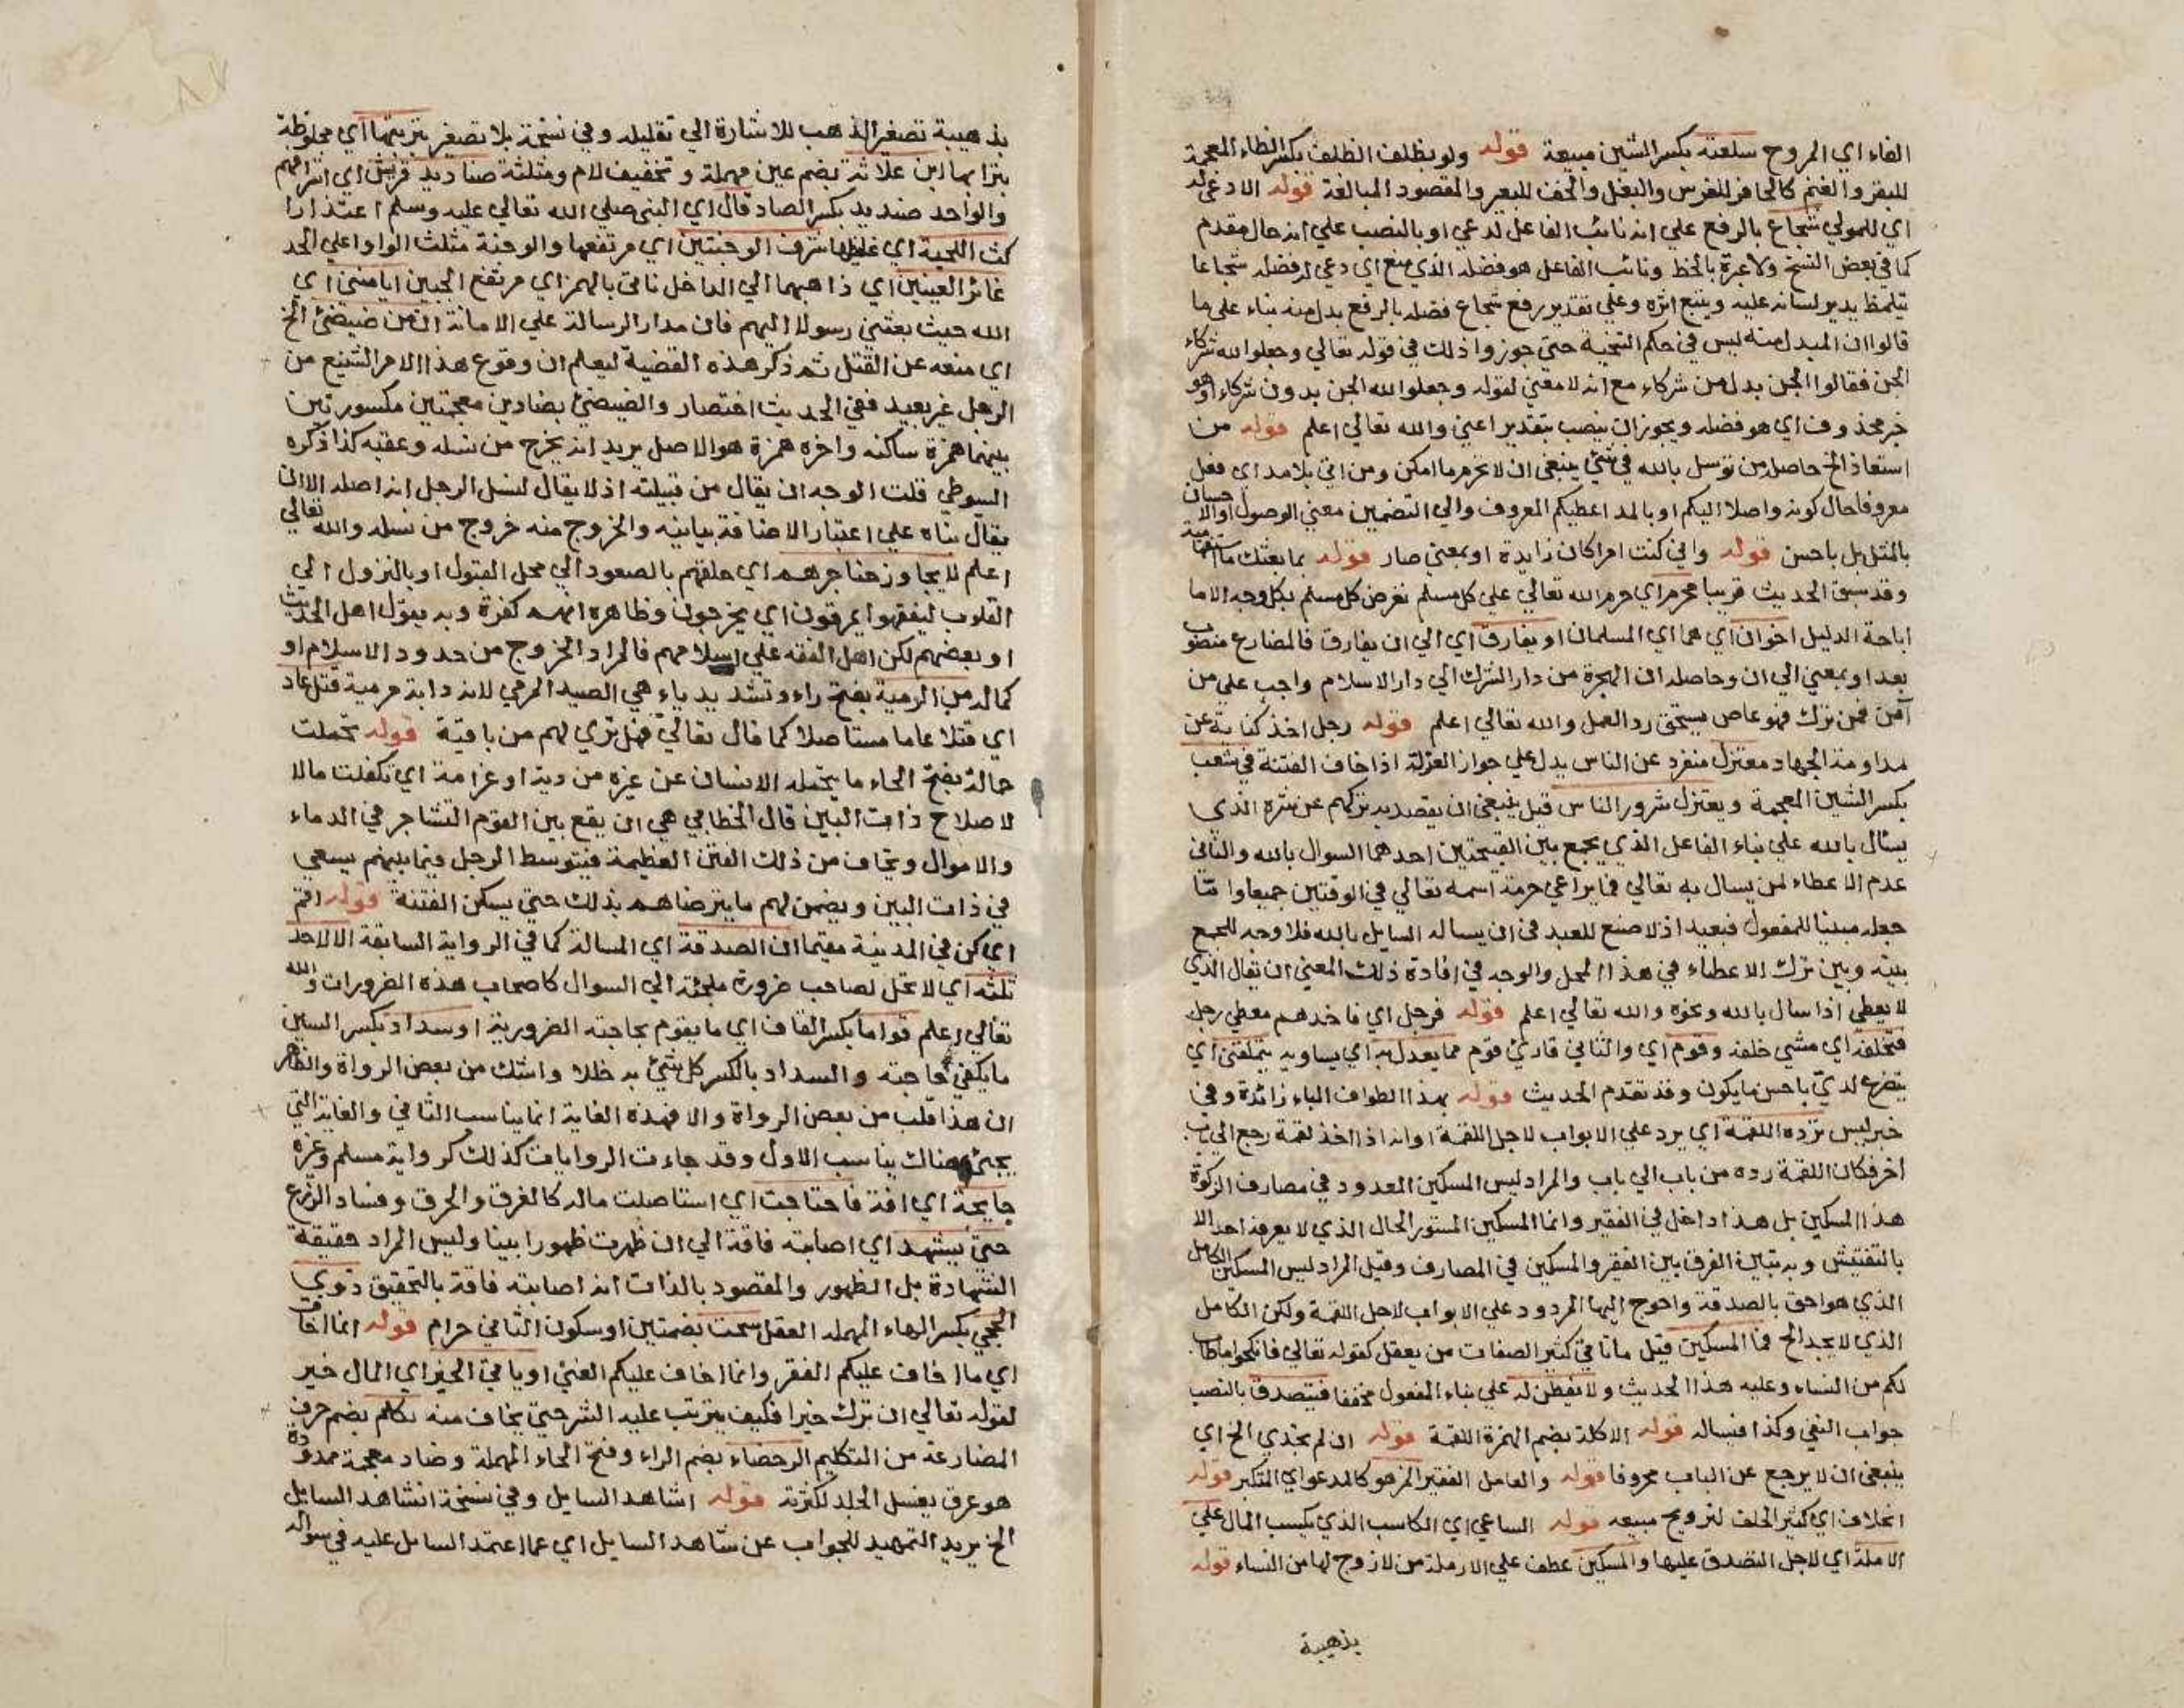 الفاء اي المروج سلعته بكسر الشين مبيعة قوله ولو بظلف الظلف بكسر الظاء المعجمة
للبقر والغنم كالحافر للفرس والبغل والخف للبعير والمقصود المبالغة قوله الا دعي له
اي للمولي شجاع بالرفع علي انه نائب الفاعل لدعي او بالنصب علي انه حال مقدم
كما في بعض النسخ ولا عبرة بالخط ونائب الفاعل هو فضله الذي منع اي دعي له فضله شجاعا
يتلمظ يدير لسانه عليه ويتبع اثره وعلي تقدير رفع شجاع فضله بالرفع بدل منه بناء علي ما
قالوا ان المبدل منه ليس في حكم التنحية حتي جوزوا ذلك في قوله تعالي وجعلوا لله شركاء
الجن فقالوا الجن بدل من شركاء مع انه لا معني لقوله وجعلوا لله الجن بدون شركاء او هو
خبر محذوف اي هو فضله ويجوز ان ينصب بتقدير اعني والله تعالي اعلم قوله من
استعاذ الخ حاصله من توسل بالله في شئ ينبغي ان لا يحرم ما امكن ومن اتي بلا مد اي فعل
معروفا حال كونه واصلا اليكم او بالمد اعطيكم المعروف والي التضمين معني الوصول او الاحسان
بالمثل بل باحسن قوله واني كنت امرا كان زايدة او بمعني صار قوله بما بعثك ما استفهامية
وقد سبق الحديث قريبا محرم اي حرم الله تعالي علي كل مسلم تعرض كل مسلم بكل وجه الا ما
اباحة الدليل اخوان اي هما اي المسلمان او يفارق اي الي ان يفارق فالمضارع منصوب
بعد او بمعني الي ان وحاصله ان الهجرة من دار الشرك الي دار الاسلام واجب علي من
آمن فمن ترك فهو عاص يستحق رد العمل والله تعالي اعلم قوله رجل اخذ كناية عن
مداومة الجهاد معتزل منفرد عن الناس يدل علي جواز العزلة اذا خاف الفتنة في شعب
بكسر الشين المعجمة ويعتزل شرور الناس قيل ينبغي ان يقصد به تركهم عن شره الذي
يسأل بالله علي بناء الفاعل الذي يجمع بين القبيحتين احدهما السوال بالله والثاني
عدم الاعطاء لمن يسال به تعالي فما يراعي حرمة اسمه تعالي في الوقتين جميعا واما
جعله مبنيا للمفعول فبعيد اذ لا صنع للعبد في ان يساله السايل بالله فلا وجه للجمع
بينه وبين ترك الاعطاء في هذا المحل والوجه في افادة ذلك المعني ان يقال الذي
لا يعطي اذا سال بالله ونحوه والله تعالي اعلم قوله فرجل اي فاحدهم معطي رجل
فتخلفه اي مشي خلفه وقوم اي والثاني قارئ قوم مما يعدل به اي يساويه يتملقني اي
يتضرع لدي باحسن ما يكون وقد تقدم الحديث قوله بهذا الطواف الباء زائدة وفي
خبر ليس ترده اللقمة اي يرد علي الابواب لاجل اللقمة او انه اذا اخذ لقمة رجع الي باب
اخر فكان اللقمة رده من باب الي باب والمراد ليس المسكين المعدود في مصارف الزكوة
هذا المسكين بل هذا داخل في الفقير وانما المسكين المستور الحال الذي لا يعرفه احد الا
بالتفتيش وبه تباين الفرق بين الفقير والمسكين في المصارف وقيل المراد ليس المسكين الكامل
الذي هو احق بالصدقة واحوج اليها المردود علي الابواب لاجل اللقمة ولكن الكامل
الذي لا يجد الخ فما المسكين قيل ما تاتي كثيرا لصفات من يعقل كقوله تعالي فانكحوا ما طاب
لكم من النساء وعليه هذا الحديث ولا يفطن له علي بناء المفعول مخففا فيتصدق بالنصب
جواب النفي وكذا فيساله قوله الاكلة بضم الهمزة اللقمة قوله ان لم تجدي الخ اي
ينبغي ان لا يرجع عن الباب محروفا قوله والعامل الفقير المزهو كالمدعو اي المتكبر قوله
الحلاف اي كثير الحلف لترويج مبيعه قوله الساعي اي الكاسب الذي يكسب المال علي
الارملة اي لاجل التصدق عليها والمسكين عطف علي الارملة من لا زوج لها من النساء قوله
بذهيبة
بذهيبة تصغير الذهب للاشارة الي تقليله وفي نسخة بلا تصغير بتربتها اي مخلوطة
بترابها ابن علاثة بضم عين مهملة وتخفيف لام ومثلثة صناديد قريش اي اشرافهم
والواحد صنديد بكسر الصاد قال اي النبي صلي الله تعالي عليه وسلم اعتذارا
كث اللحية اي غليظها مشرف الوجنتين اي مرتفعها والوجنة مثلث الواو اعلي الخد
غائر العينين اي ذاهبهما الي الداخل ناتئ بالهمز اي مرتفع الجبين ايامنني اي
الله حيث بعثني رسولا اليهم فان مدار الرسالة علي الامانة ان من ضيضئ الخ
اي منعه عن القتل ثم ذكر هذه القضية ليعلم ان وقوع هذا الامر الشنيع من
الرجل غير بعيد ففي الحديث اختصار والضيضئ بضادين معجمتين مكسورتين
بينهما همزة ساكنه واخره همزة هو الاصل يريد انه يخرج من نسله وعقبه كذا ذكره
السيوطي قلت الوجه ان يقال من قبيلته اذ لا يقال لنسل الرجل انه اصله الا ان
يقال بناء علي اعتبار الاضافة بيانيه والخروج منه خروج من نسله والله تعالي
اعلم لا يجاوز حناجرهم اي حلقهم بالصعود الي محل القبول او بالنزول الي
القلوب ليفقهوا يمرقون اي يخرجون وظاهره انهم كفرة وبه يقول اهل الحديث
او بعضهم لكن اهل الفقه علي اسلامهم فالمراد الخروج من حدود الاسلام او
كماله من الرمية بفتح راء وتشديد ياء هي الصيد المرمي لانه دابة مرمية قتل عاد
اي قتلا عاما مستاصلا كما قال تعالي فهل تري لهم من باقية قوله تحملت
حمالة بفتح الحاء ما يتحمله الانسان عن غيره من دية او غرامة اي تكفلت مالا
لاصلاح ذات البين قال الخطابي هي ان يقع بين القوم التشاجر في الدماء
والاموال ويخاف من ذلك الفتن العظيمة فيتوسط الرجل فيما بينهم يسعي
في ذات البين ويضمن لهم ما يترضاهم بذلك حتي يسكن الفتنة قوله اقم
اي كن في المدينة مقيما ان الصدقة اي المسالة كما في الرواية السابقة الا لاحد
ثلثه اي لا تحل لصاحب ضرورة ملجئة الي السوال كاصحاب هذه الضرورات والله
تعالي اعلم قواما بكسر القاف اي ما يقوم بحاجته الضرورية او سدادا بكسر السين
ما يكفي حاجته والسداد بالكسر كل شئ به خللا والشك من بعض الرواة والظاهر
ان هذا قلب من بعض الرواة والا فهذه الغاية انما يناسب الثاني والغاية التي
يجئ هناك يناسب الاول وقد جاءت الروايات كذلك كرواية مسلم وغيره
جايحة اي افة فاجتاحت اي استاصلت ماله كالغرق والحرق وفساد الزرع
حتي يشهد اي اصابته فاقة الي ان ظهرت ظهورا بينا وليس المراد حقيقة
الشهادة بل الظهور والمقصود بالذات انه اصابته فاقة بالتحقيق ذوي
الحجي بكسر الحاء المهملة العقل سحت بضمتين او سكون الثاني حرام قوله انما اخاف
اي ما اخاف عليكم الفقر وانما اخاف عليكم الغني او ياتي الخير اي المال خير
لقوله تعالي ان ترك خيرا فكيف يترتب عليه الشر حتي يخاف منه تكلم بضم حرف
المضارعة من التكليم الرحضاء بضم الراء وفتح الحاء المهملة وضاد معجمة ممدودة
هو عرق يغسل الجلد لكثرته قوله اشاهد السايل وفي نسخة انشاهد السايل
الخ يريد التمهيد للجواب عن شاهد السايل اي عما اعتمد السايل عليه في سواله